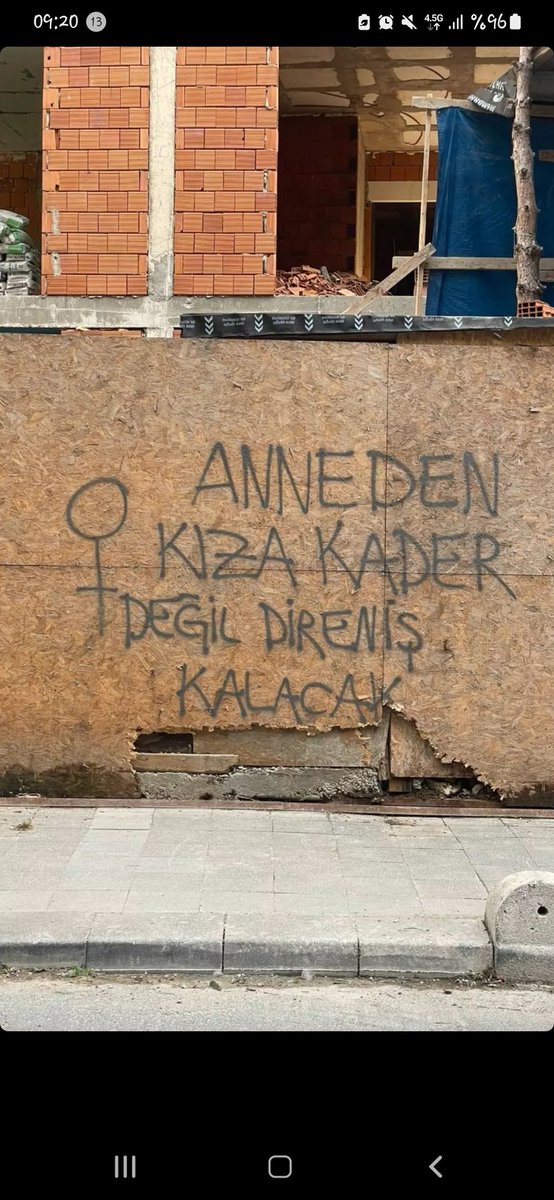 09:20 13 4.5G %96
ANNEDEN
KIZA KADER
DEĞİL DİRENİŞ
KALACAK